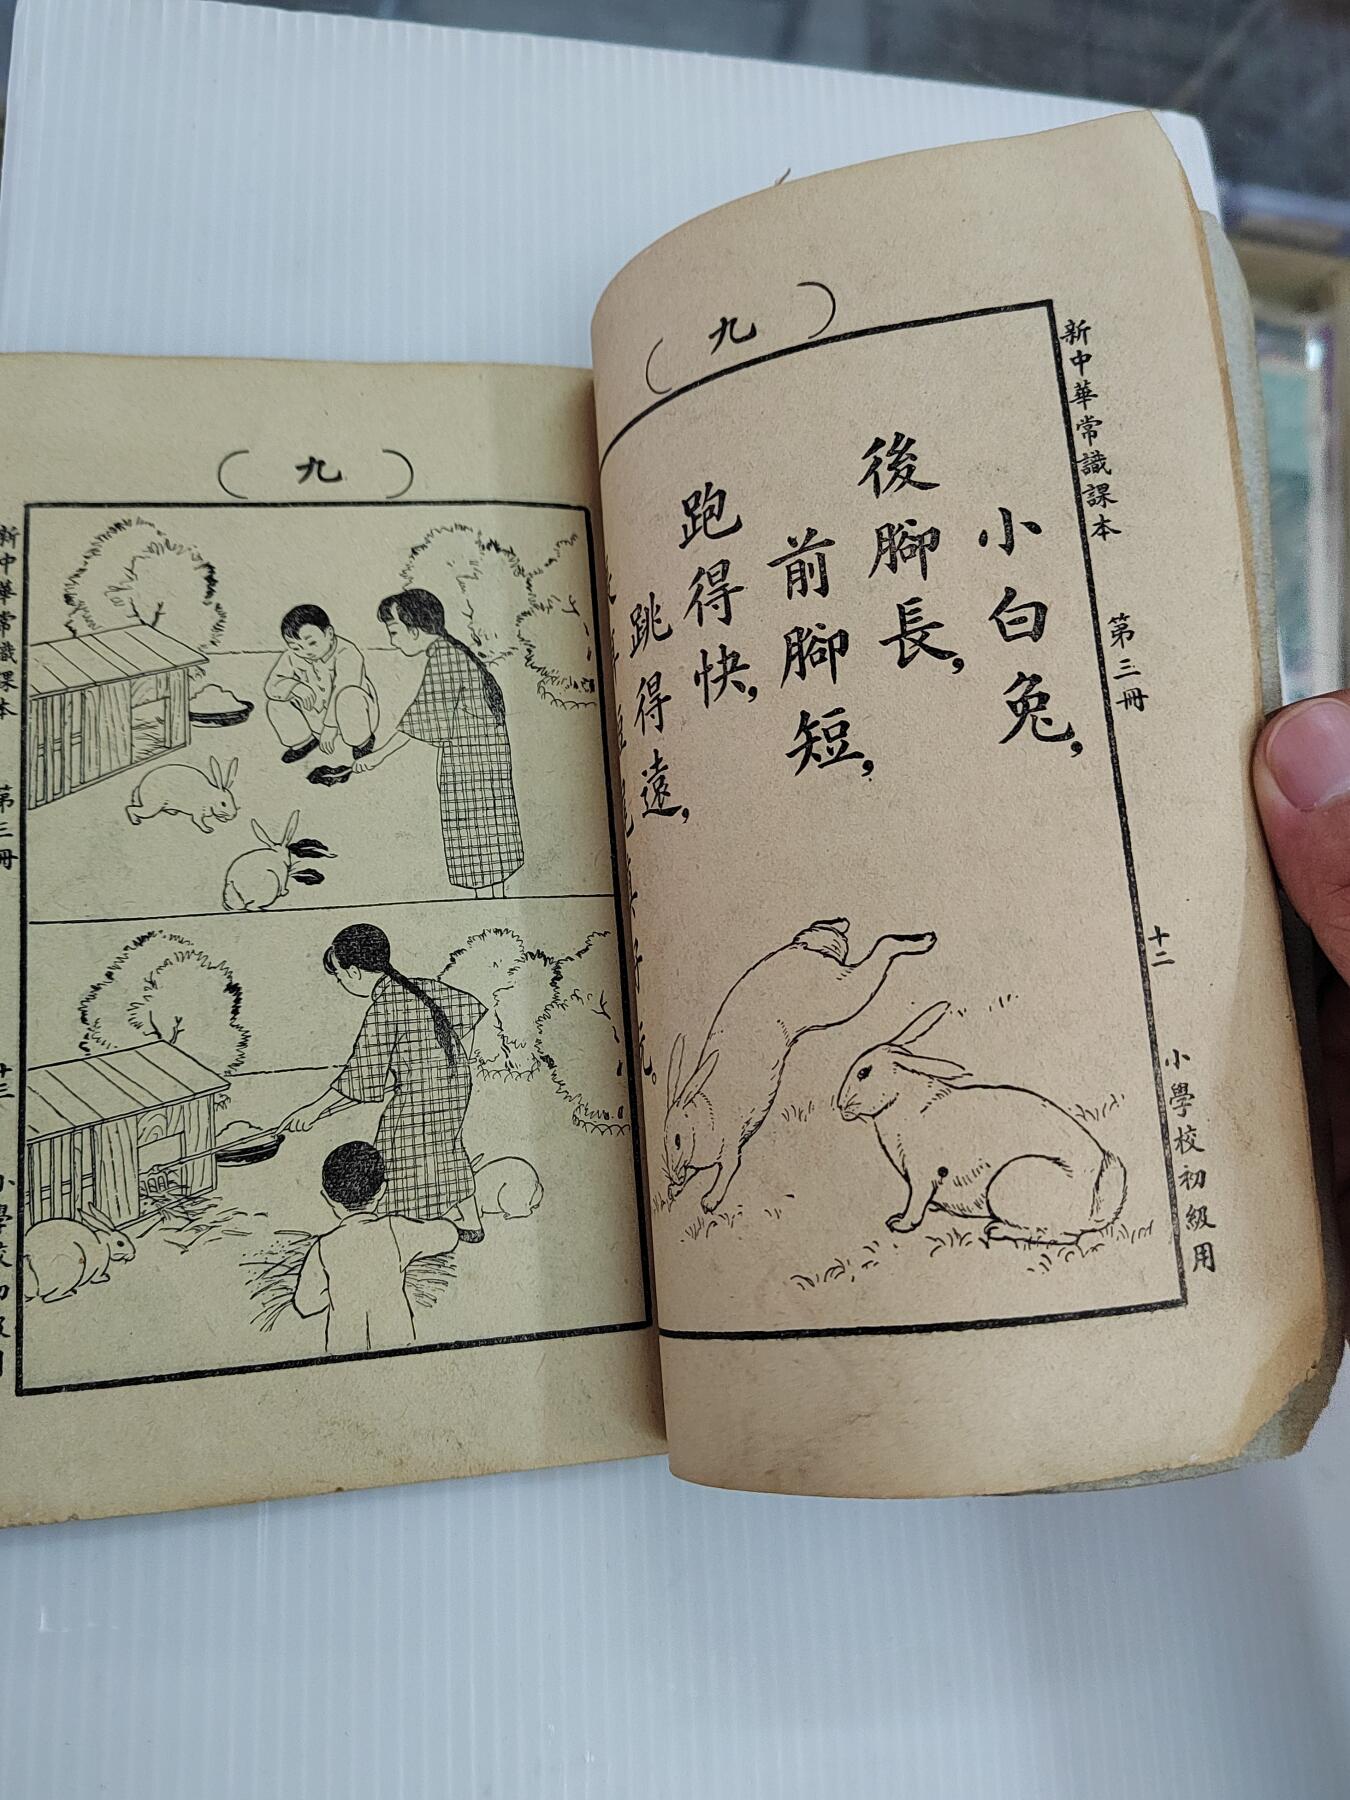 新中華常識課本 第三冊 十二 小學校初級用
(九)
小白兔,
後腳長,
前腳短,
跑得快,
跳得遠,
(九)
新中華常識課本 第三冊 十三 小學校初級用